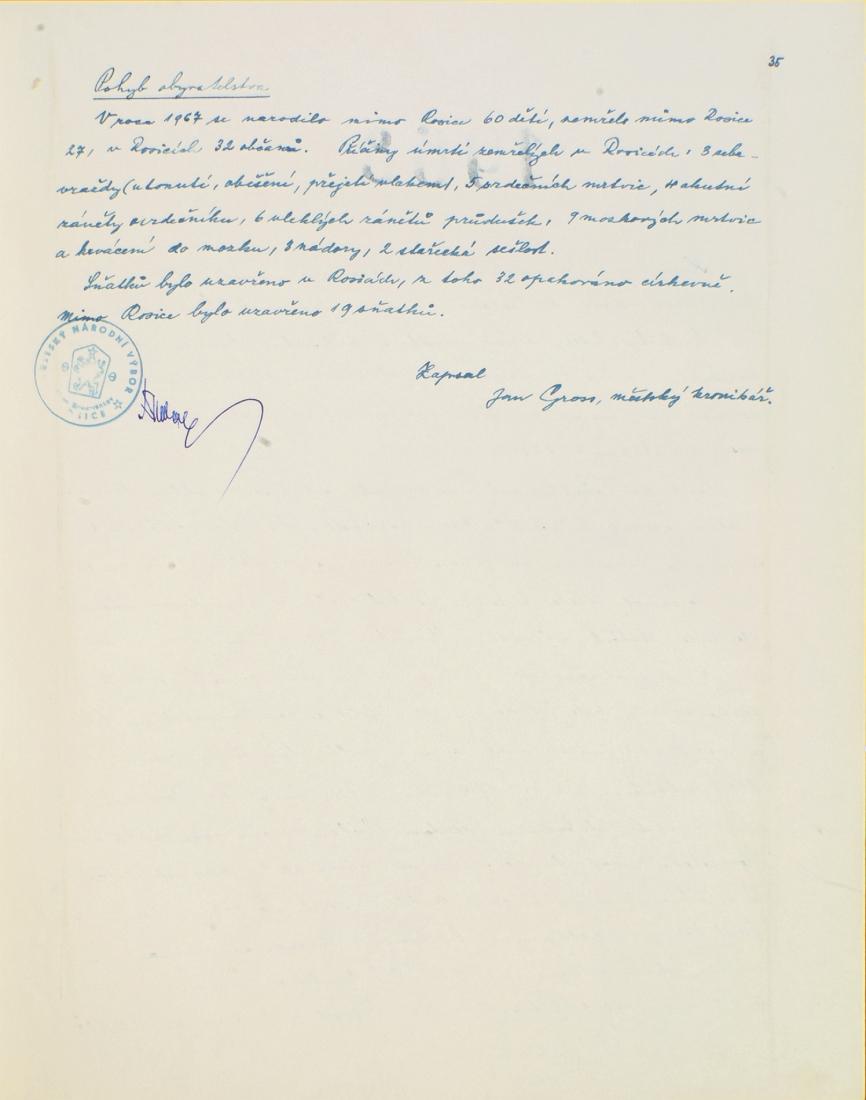 35
Pohyb obyvatelstva.
V roce 1967 se narodilo mimo Rosice 60 dětí, zemřelo mimo Rosice
27, v Rosicích 32 občanů. Příčiny úmrtí zemřelých v Rosicích: 3 sebe-
vraždy (utonutí, oběšení, přejetí vlakem), 5 srdečních mrtvic, 4 akutní
záněty osrdečníku, 6 vleklých zánětů průdušek, 9 mozkových mrtvic
a krvácení do mozku, 3 nádory, 2 stařecká sešlost.
Sňatků bylo uzavřeno v Rosicích, z toho 32 opakováno církevně.
Mimo Rosice bylo uzavřeno 19 sňatků.
Zapsal
Jan Gross, městský kronikář.
MĚSTSKÝ NÁRODNÍ VÝBOR